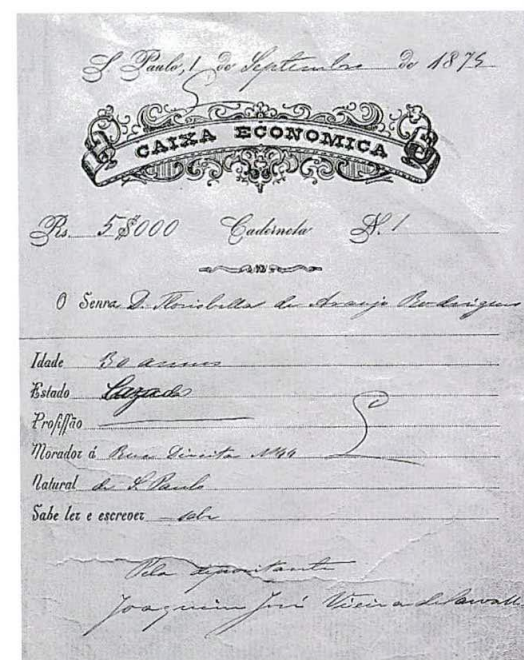 S. Paulo, 1 de Septembro de 1875
CAIXA ECONOMICA
Rs. 5$000 Caderneta N. 1
O Senra D. Florisbella de Araujo Rodrigues
Idade 30 annos
Estado Cazada
Profissão
Morador á Rua Direita Nº 44
Natural de S. Paulo
Sabe ler e escrever sabe
Pela depositante
Joaquim José Vieira de Carvalho